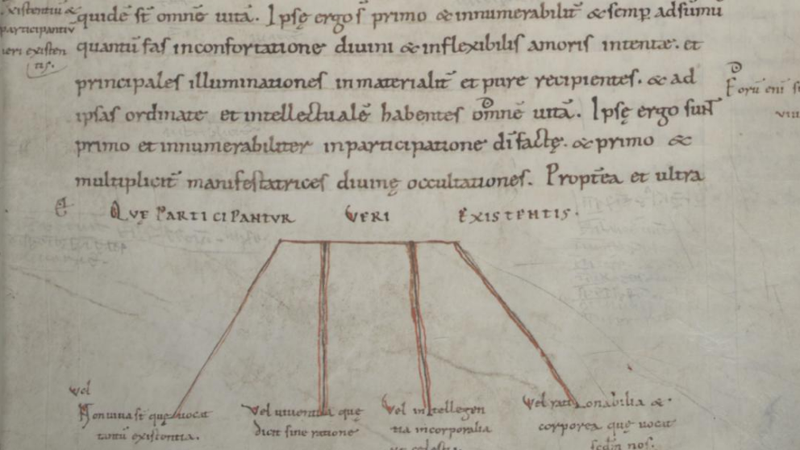 quidē st̄ omnē uitā. Ipsę ergo s̄ primo & innumerabilit̄ & semp adsūmū
quantū fas inconfortatione diuini & inflexibilis amoris intentæ. et
principales illuminationes inmaterialit̄ et pure recipientes. & ad
ipsas ordinate et intellectualē habentes omnē uitā. Ipsę ergo sun̄t
primo et innumerabiliter inparticipatione di factę. & primo &
multiplicit̄ manifestatrices diuinę occultationes. Propt̄ea et ultra
Quę participantur ueri existentis.
Vel
Non uiua st̄ quę uocat
tantū existentia.
Vel uiuentia quę
dicit sine ratione
Vel intellegen
tia incorporalia
Vel rationabilia &
corporea quę uocat
scdm nos.